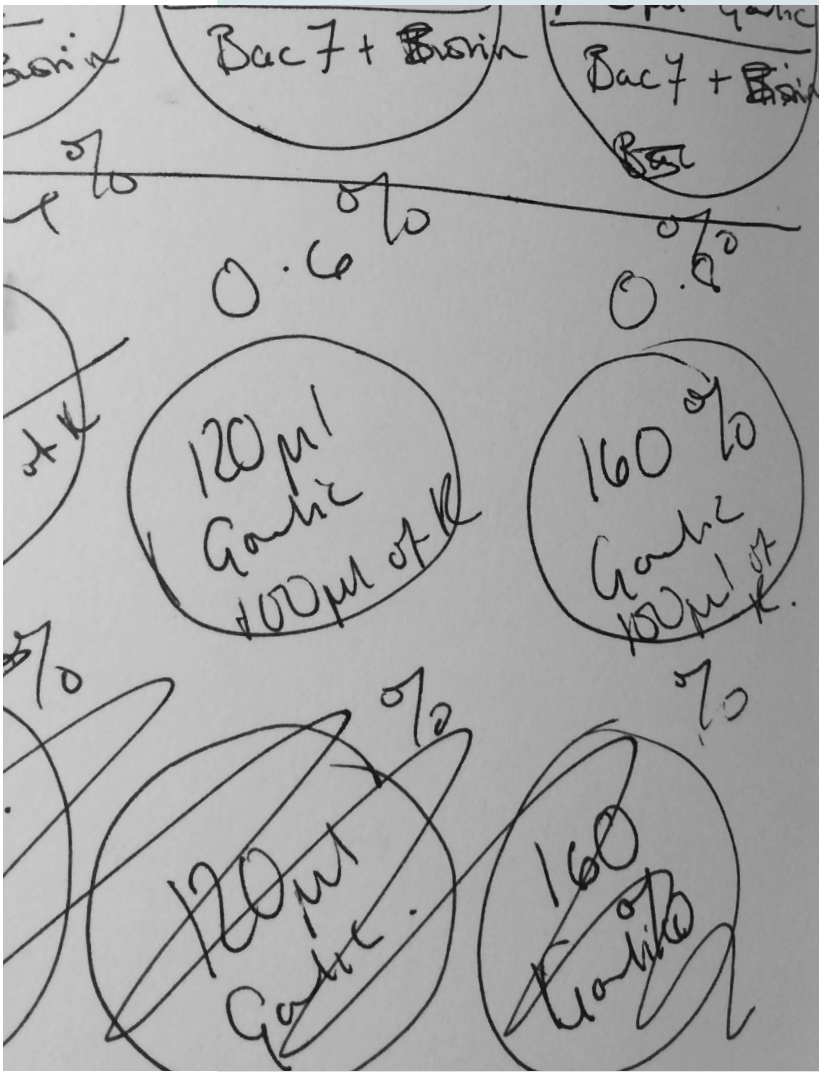 Garlic
Bac 7 +
Bac 7 +
%
%
%
0.6
0.8
of K
120 µl
Garlic
100 µl of K
160 %
Garlic
100 µl of
K.
%
%
%
120 µl
Garlic.
160
%
Garlic